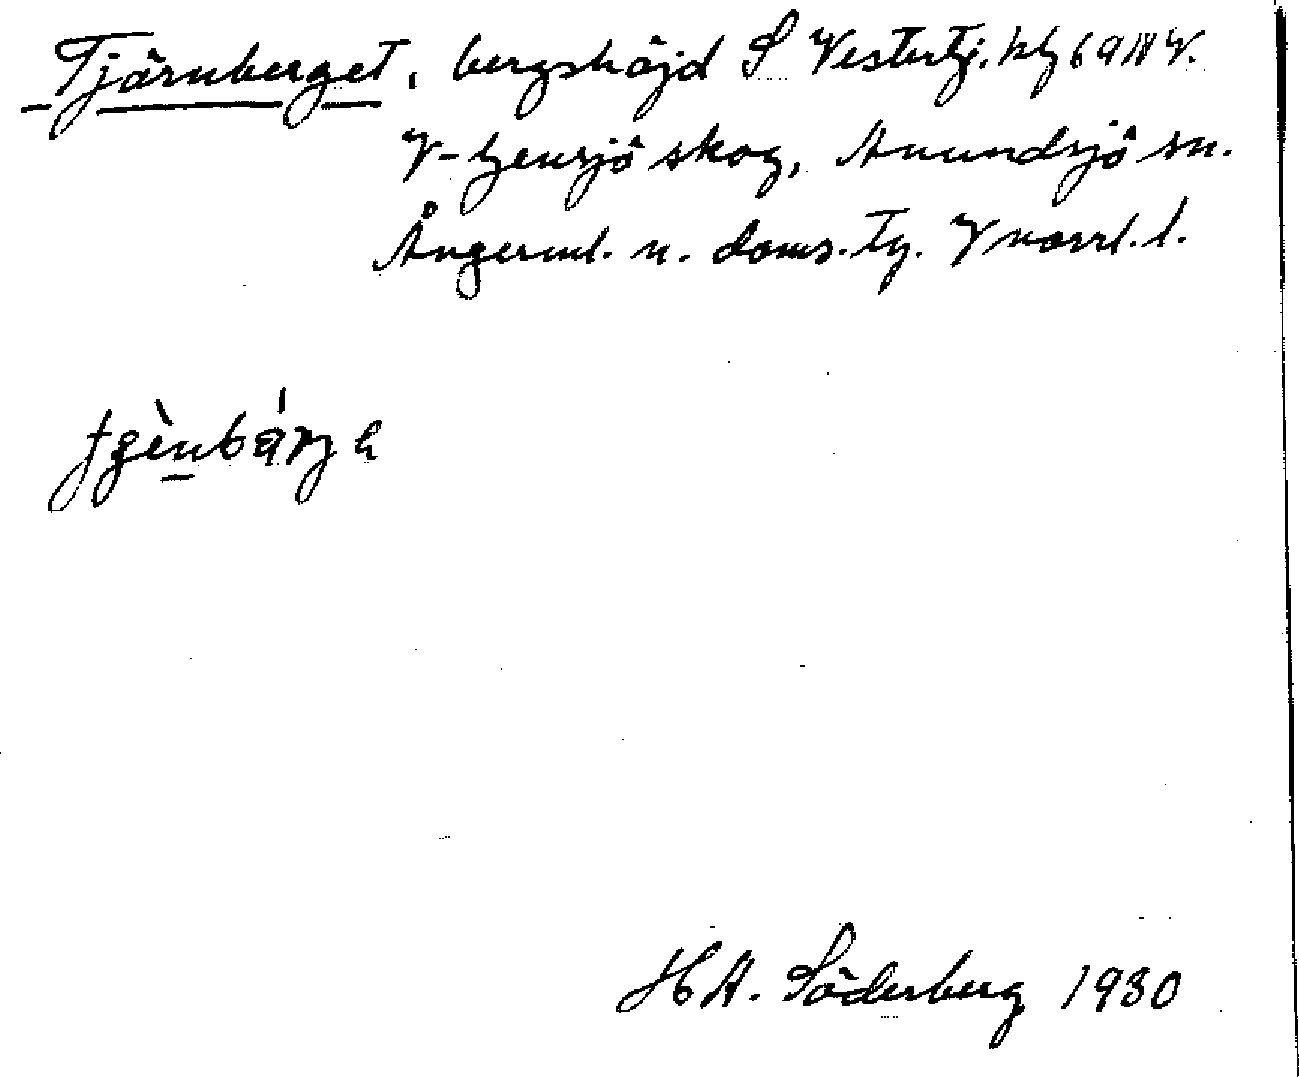 Tjärnberget, bergshöjd S Vestertj. hlg 69 NV.
V-Gensjö skog, Anundsjö sn.
Ångerml. n. doms. tg. Vnorrl. l.
H A. Söderberg 1930